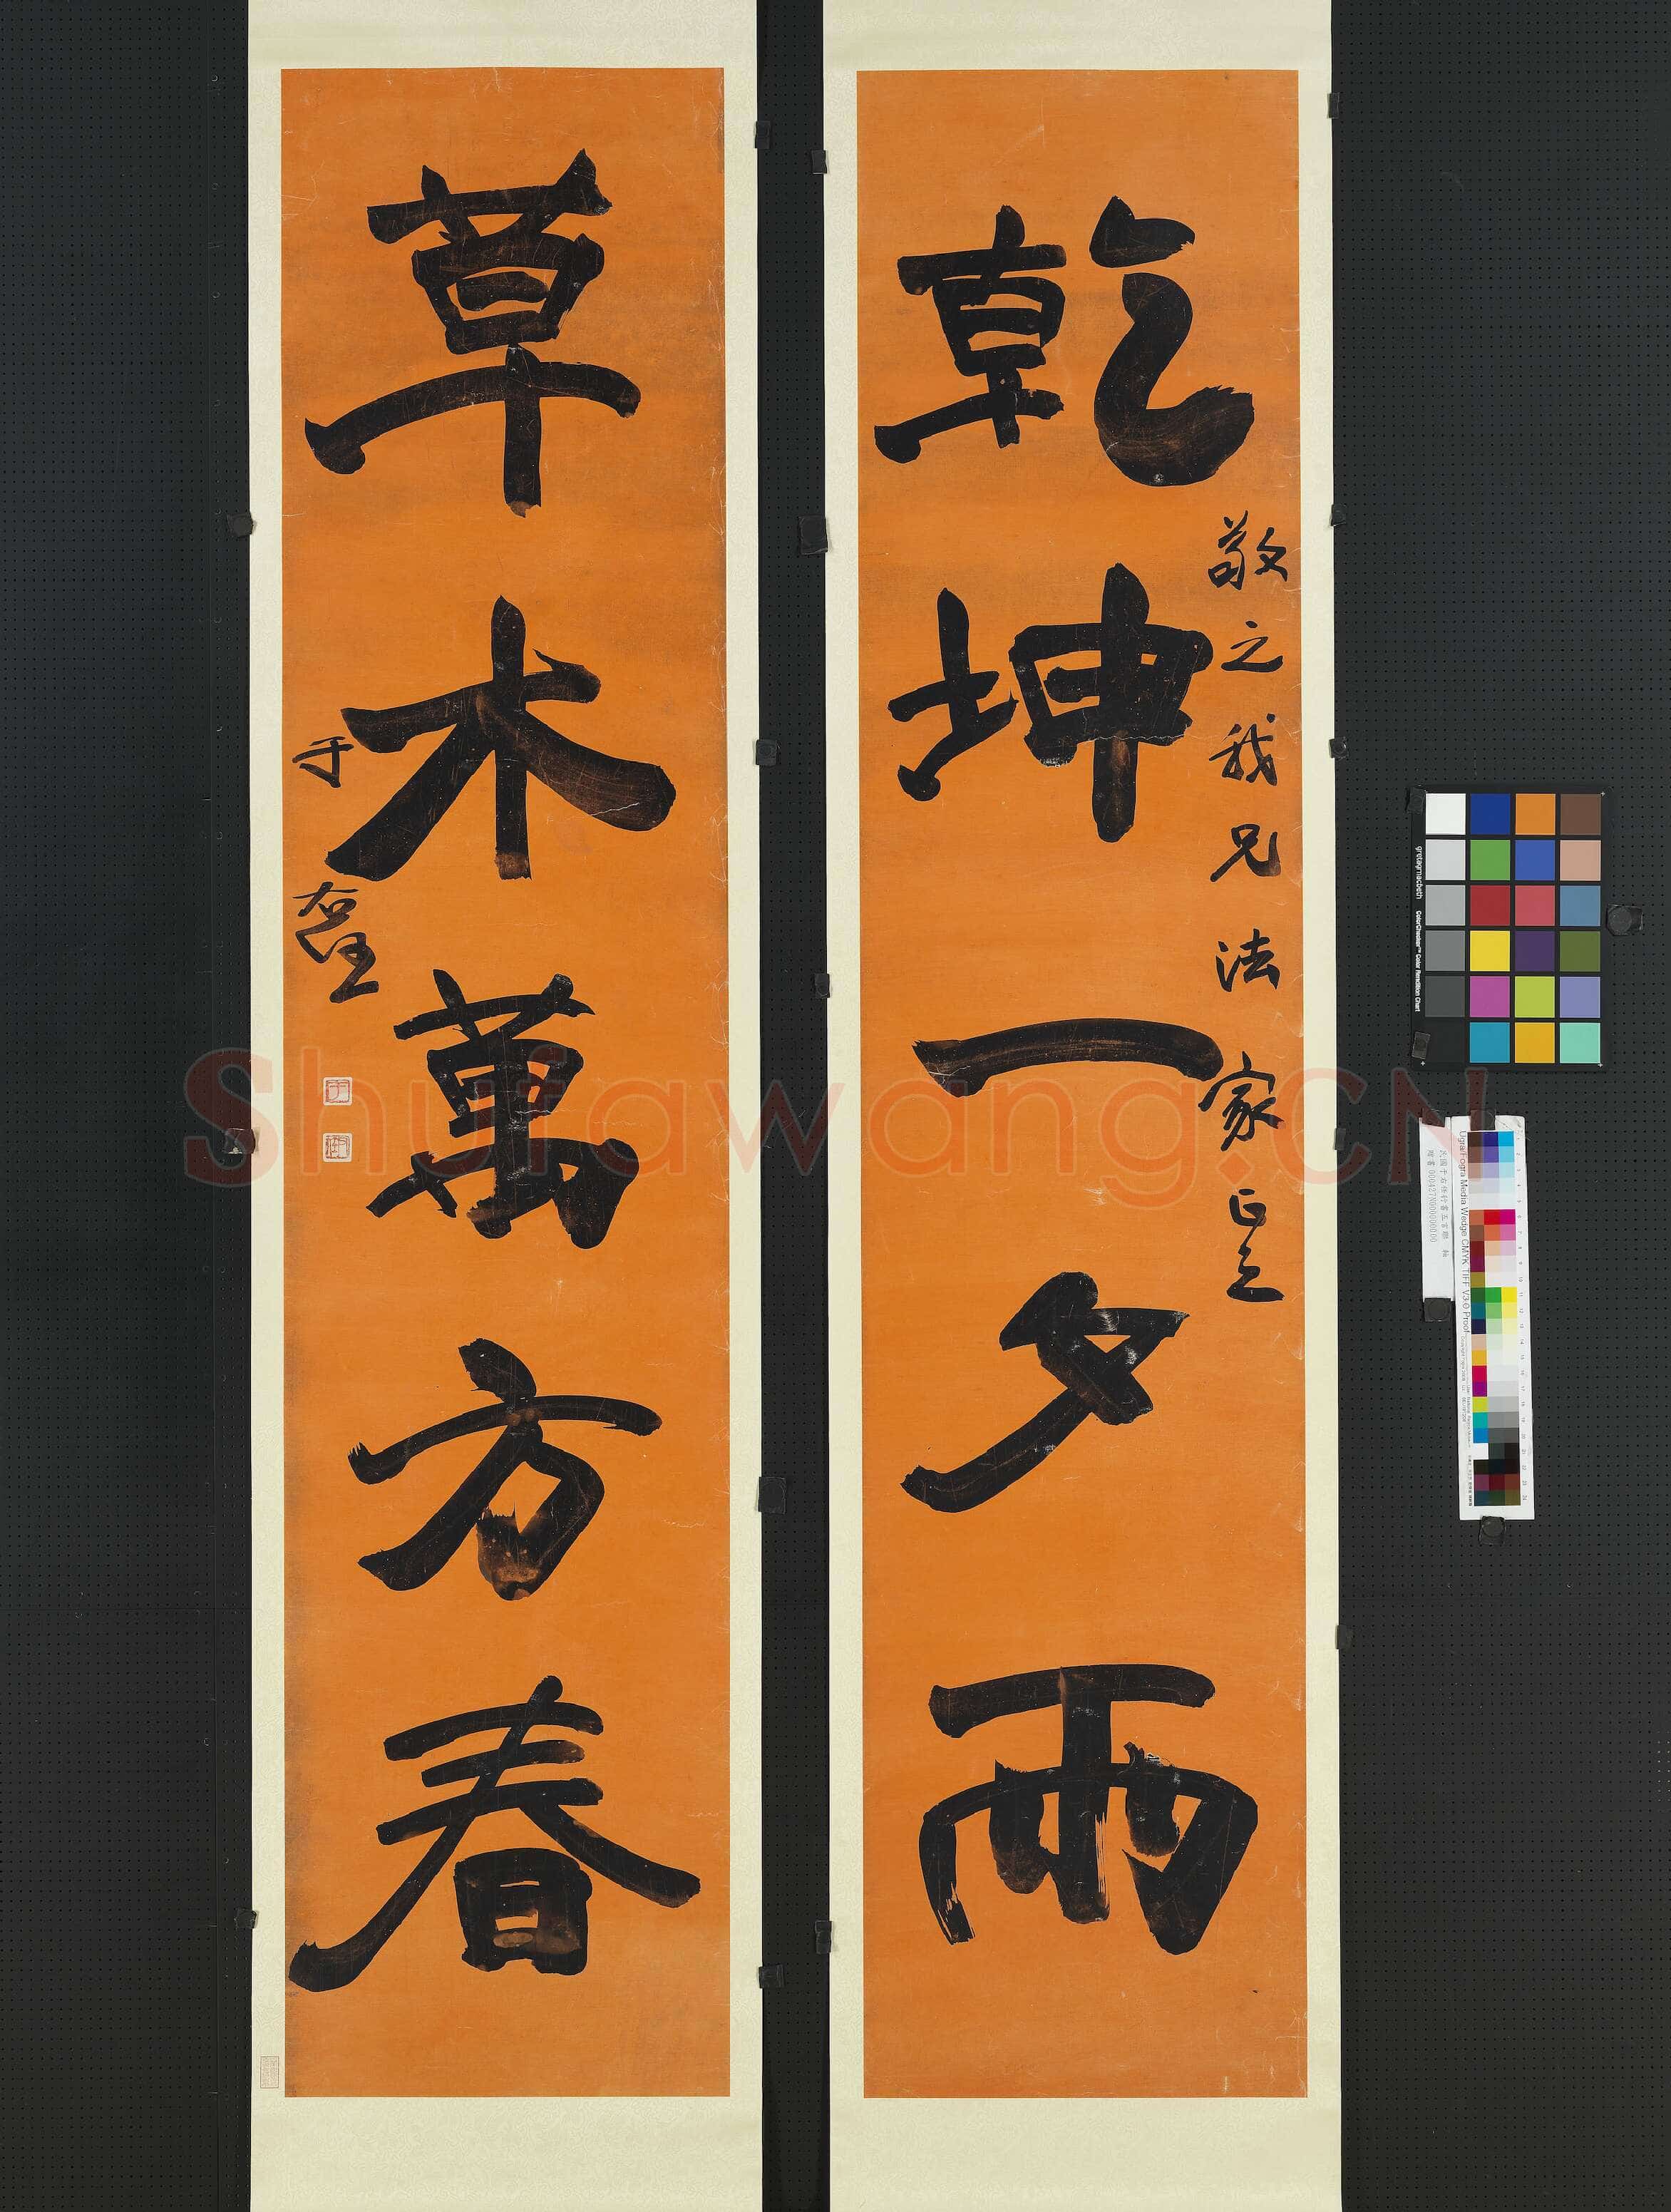 乾坤一夕雨
敬之我兄法家正之
草木萬方春
于右任
Shufawang.CN
gretagmacbeth
ColorChecker Color Rendition Chart
民國于右任行書五言聯 軸
Ugra/Fogra Media Wedge CMYK TIFF V3.0 Proof